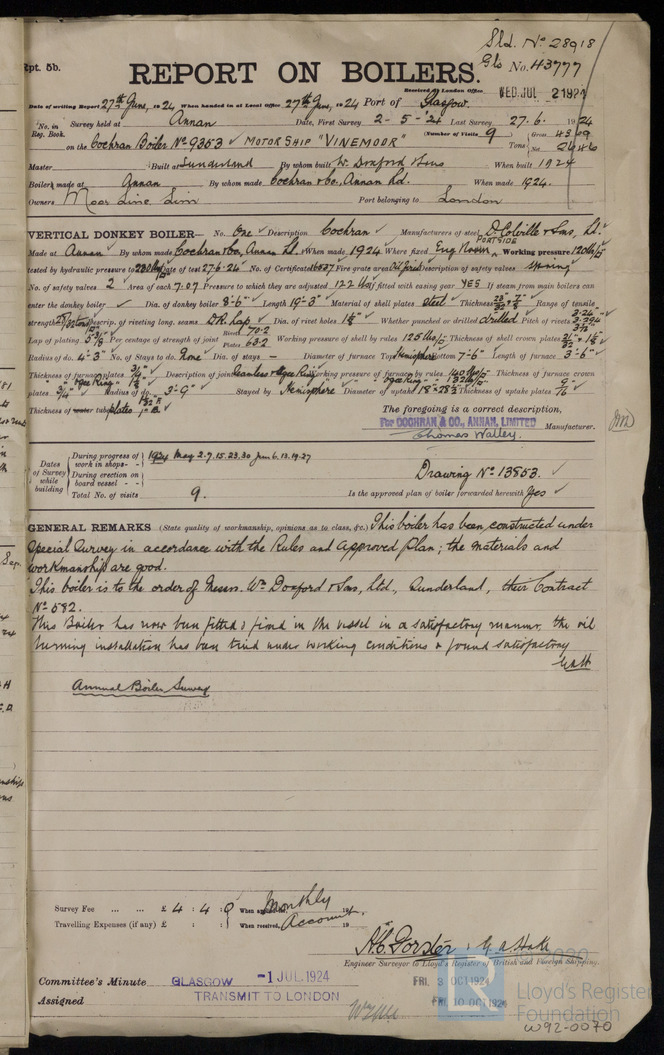 Sld. No. 28918
Rpt. 5b.
Gls No. 43777
REPORT ON BOILERS.
Received at London Office WED. JUL 2 1924
Date of writing Report 27th June, 1924 When handed in at Local Office 27th June, 1924 Port of Glasgow.
No. in Reg. Book. Survey held at Annan Date, First Survey 2-5-24 Last Survey 27.6. 1924
(Number of Visits 9) Gross Tons Net
on the Cochran Boiler No 9353 MOTOR SHIP "VINEMOOR"
Master Built at Sunderland By whom built W. Doxford & Sons When built 1924
Boilers made at Annan By whom made Cochran & Co., Annan Ld. When made 1924.
Owners Moor Line, Lim Port belonging to London
VERTICAL DONKEY BOILER No. One Description Cochran Manufacturers of steel D. Colville & Sons, Ld.
PORT SIDE
Made at Annan By whom made Cochran & Co., Annan Ld. When made 1924 Where fixed Eng Room Working pressure 120 lbs
tested by hydraulic pressure to 230 lbs Date of test 27-6-24 No. of Certificate Fire grate area Oil fired Description of safety valves Spring
No. of safety valves 2 Area of each 7.07 Pressure to which they are adjusted 122 lbs If fitted with easing gear YES If steam from main boilers can
enter the donkey boiler Dia. of donkey boiler 8'-6" Length 19'-3" Material of shell plates Steel Thickness Range of tensile
strength Descrip. of riveting long. seams D.R. Lap Dia. of rivet holes Whether punched or drilled drilled Pitch of rivets
Lap of plating Per centage of strength of joint Rivets 70.2 Plates 63.2 Working pressure of shell by rules 125 lbs Thickness of shell crown plates
Radius of do. 4'-3" No. of Stays to do. None Dia. of stays - Diameter of furnace Top Hemisphere Bottom 7'-6" Length of furnace 3'-6"
Thickness of furnace plates Description of joint Seamless & Ogee Ring Working pressure of furnace by rules Thickness of furnace crown
plates Radius of do. 3'-9" Stayed by Hemisphere Diameter of uptake Thickness of uptake plates
Thickness of water tubes plates
The foregoing is a correct description,
For COCHRAN & CO., ANNAN, LIMITED Manufacturer.
Thomas Walley.
Dates of Survey while building
During progress of work in shops - - 1924 May 2.7.15.23.30 Jun 6.13.19.27
During erection on board vessel - - -
Total No. of visits 9.
Drawing No 13853.
Is the approved plan of boiler forwarded herewith Yes
GENERAL REMARKS (State quality of workmanship, opinions as to class, &c.) This boiler has been constructed under
Special Survey in accordance with the Rules and Approved Plan; the materials and
workmanship are good.
This boiler is to the order of Messrs. Wm Doxford & Sons, Ltd., Sunderland, their Contract
No 582.
This Boiler has now been fitted & fixed in the vessel in a satisfactory manner, the oil
burning installation has been tried under working conditions & found satisfactory
GAH
Annual Boiler Survey
Survey Fee ... ... £ 4 : 4 : 0 When applied for, Monthly 19
Travelling Expenses (if any) £ : : When received, Account 19
A.C. Forster & G. A. Hall
Engineer Surveyor to Lloyd's Register of British and Foreign Shipping.
Committee's Minute GLASGOW -1 JUL 1924
FRI. 3 OCT 1924
Assigned TRANSMIT TO LONDON
FRI. 10 OCT 1924
© 2020
Lloyd's Register
Foundation
W92-0070